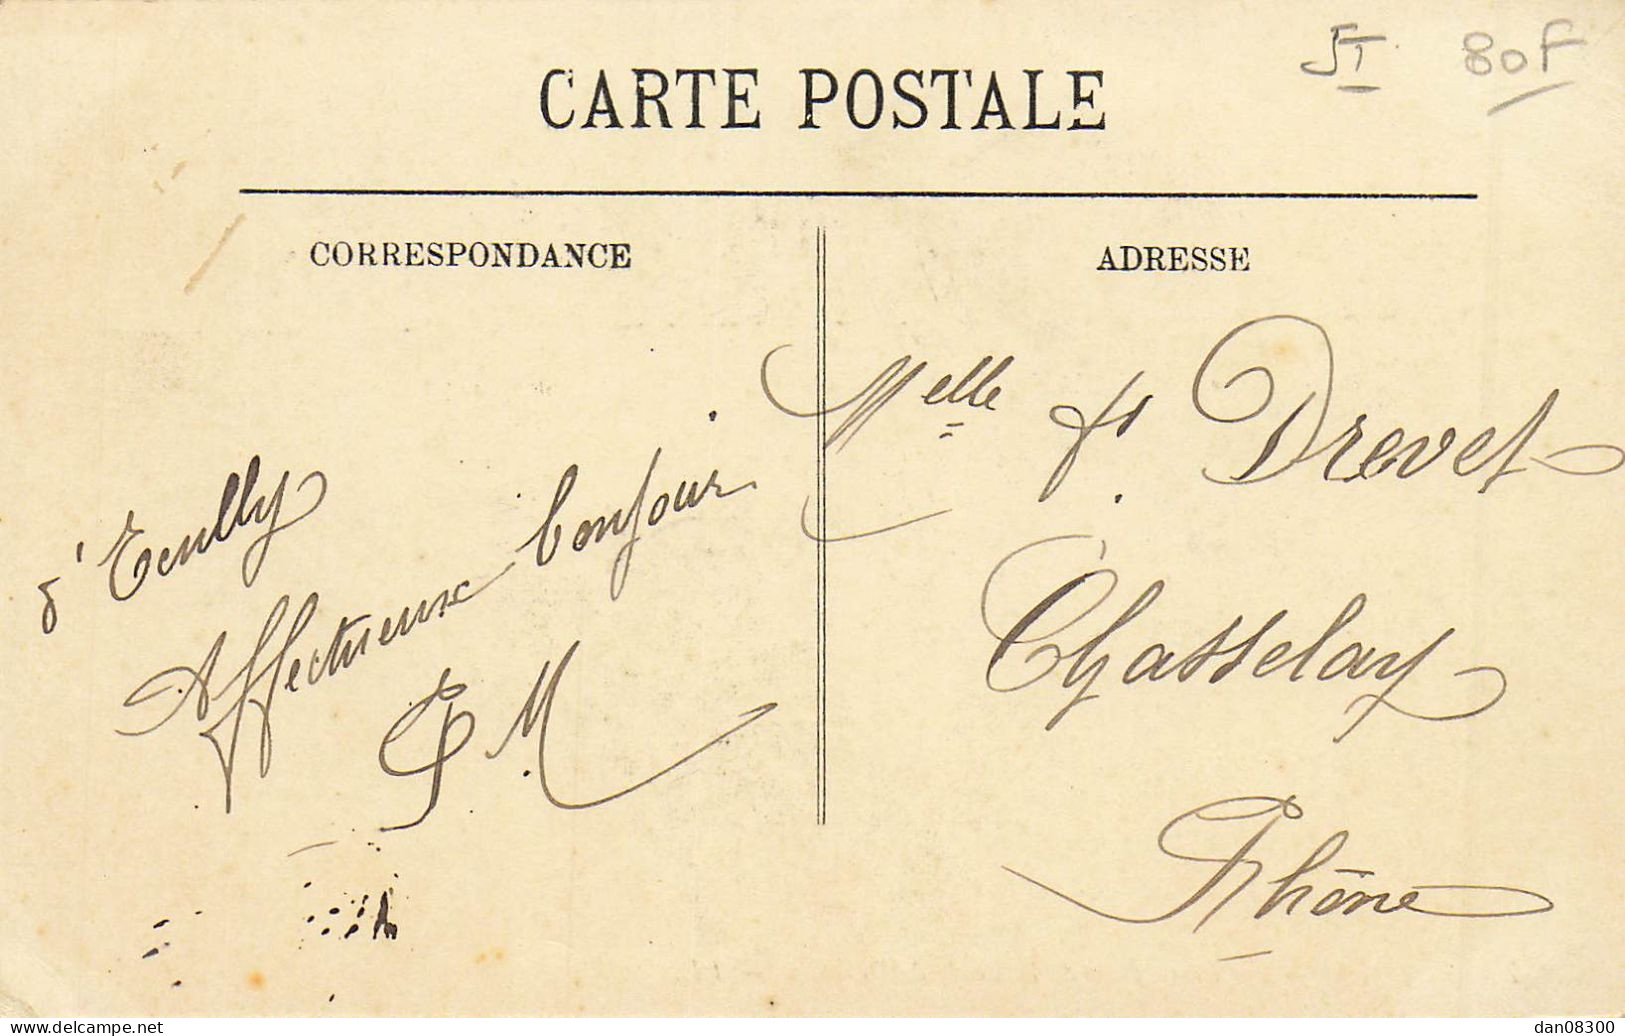 CARTE POSTALE
80F
CORRESPONDANCE
ADRESSE
d'Ecully
Affectueux bonjour
M
Melle Drevet
Chasselay
Rhône
www.delcampe.net
dan08300